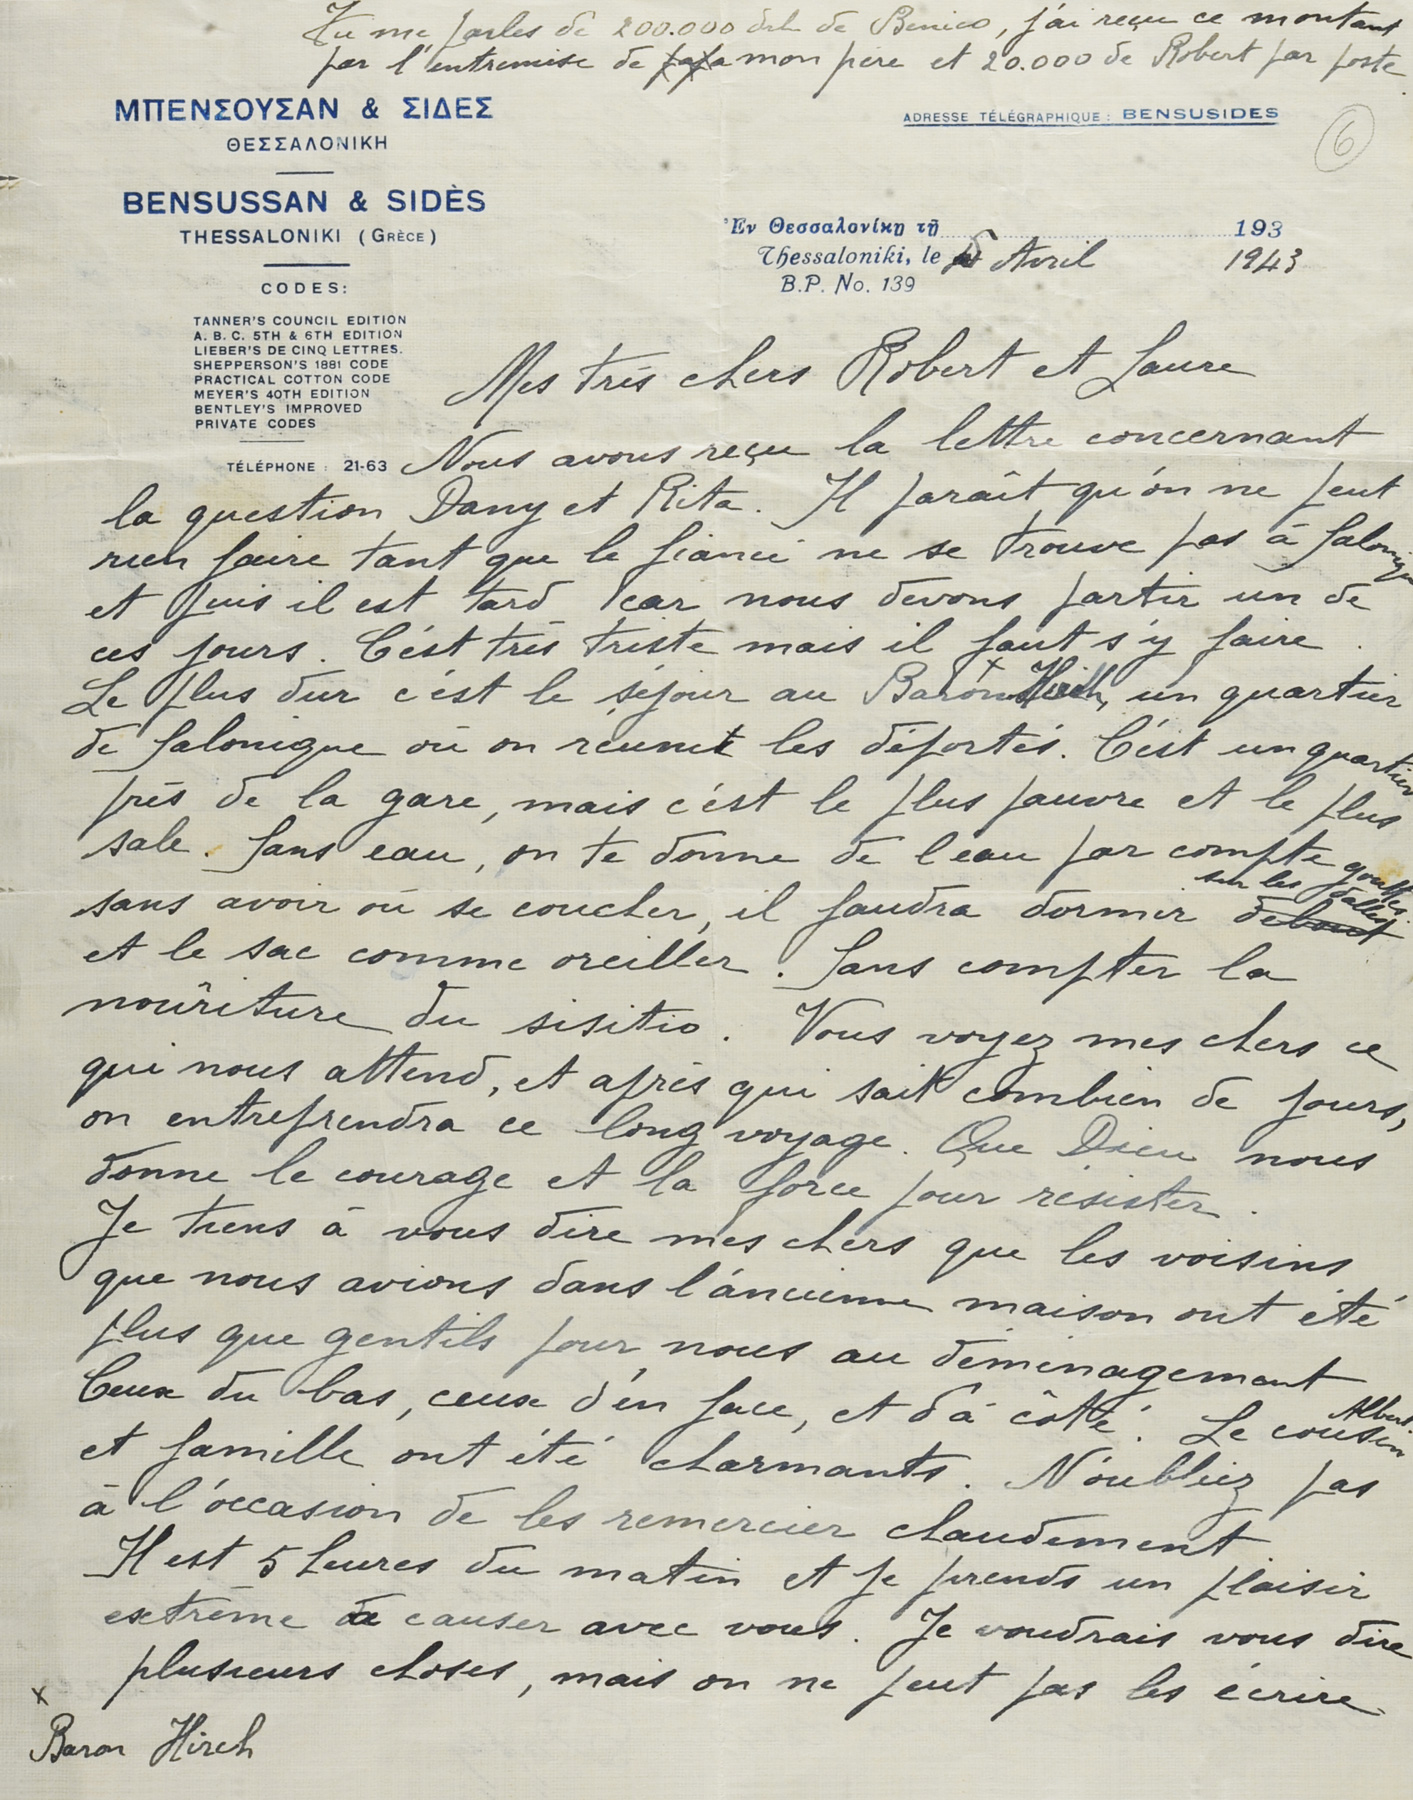 Tu me parles de 200.000 drh de Benico, j'ai reçu ce montant
par l'entremise de mon père et 20.000 de Robert par poste
ΜΠΕΝΣΟΥΣΑΝ & ΣΙΔΕΣ
ΘΕΣΣΑΛΟΝΙΚΗ
ADRESSE TÉLÉGRAPHIQUE : BENSUSIDES
6
BENSUSSAN & SIDÈS
THESSALONIKI (GRÈCE)
Ἐν Θεσσαλονίκῃ τῇ 193
Thessaloniki, le Avril 1943
B.P. No. 139
CODES:
TANNER'S COUNCIL EDITION
A. B. C. 5TH & 6TH EDITION
LIEBER'S DE CINQ LETTRES.
SHEPPERSON'S 1881 CODE
PRACTICAL COTTON CODE
MEYER'S 40TH EDITION
BENTLEY'S IMPROVED
PRIVATE CODES
TÉLÉPHONE : 21-63
Mes très chers Robert et Laure
Nous avons reçu la lettre concernant
la question Dany et Rita. Il paraît qu'on ne peut
rien faire tant que le fiancé ne se trouve pas à Salonique
et puis il est tard car nous devons partir un de
ces jours. C'est très triste mais il faut s'y faire.
Le plus dur c'est le séjour au Baron x Hirch, un quartier
de Salonique où on réunit les déportés. C'est un quartier
près de la gare, mais c'est le plus pauvre et le plus
sale. Sans eau, on te donne de l'eau par compte gouttes.
sans avoir où se coucher, il faudra dormir debout sur les dalles
et le sac comme oreiller. Sans compter la
noûriture du sisitio. Vous voyez mes chers ce
qui nous attend, et après qui sait combien de jours,
on entreprendra ce long voyage. Que Dieu nous
donne le courage et la force pour résister.
Je tiens à vous dire mes chers que les voisins
que nous avions dans l'ancienne maison ont été
plus que gentils pour nous au déménagement
Ceux du bas, ceux d'en face, et d'à côté. Le cousin Albert
et famille ont été charmants. N'oubliez pas
à l'occasion de les remercier chaudement
Il est 5 heures du matin et je prends un plaisir
extrême de causer avec vous. Je voudrais vous dire
plusieurs choses, mais on ne peut pas les écrire.
x
Baron Hirch